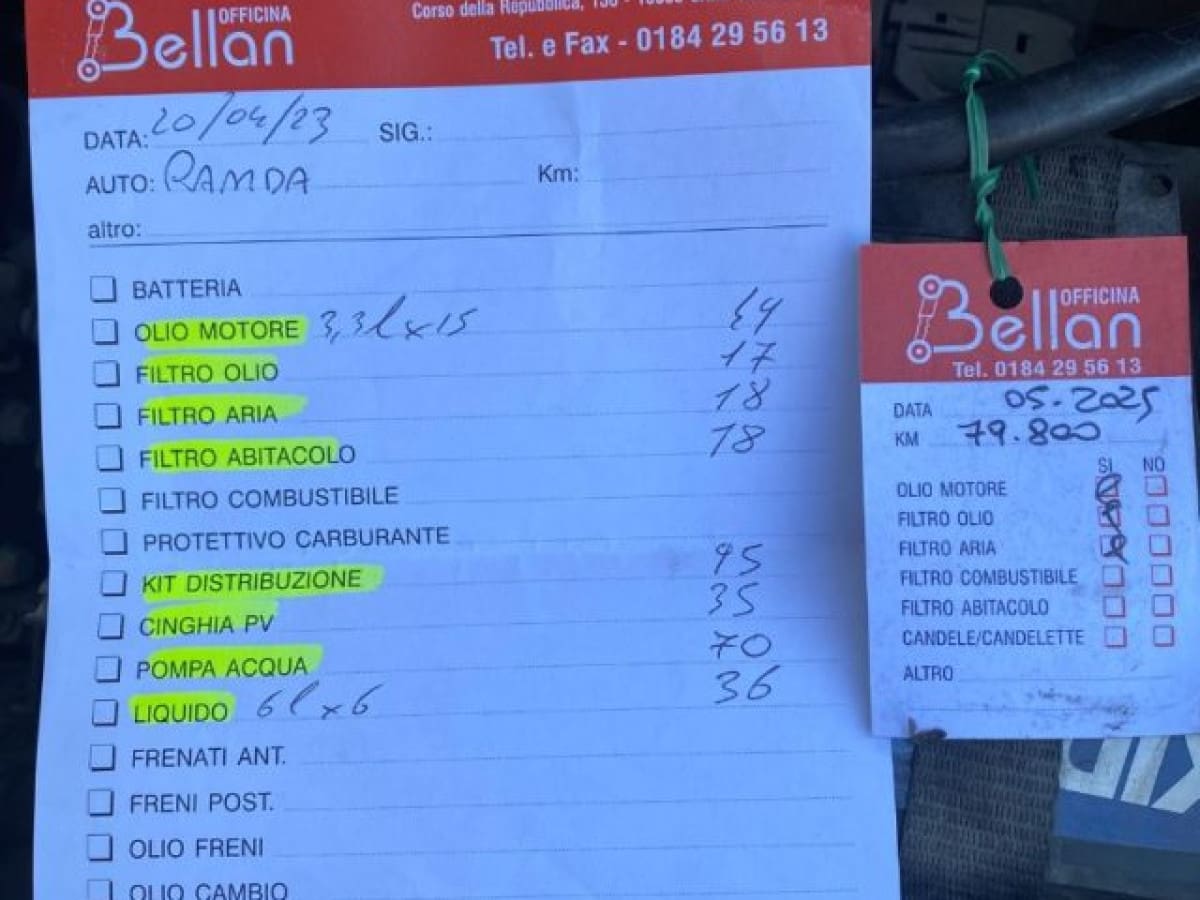 OFFICINA
Bellan
Corso della Repubblica,
Tel. e Fax - 0184 29 56 13
DATA: 20/04/23 SIG.:
AUTO: PANDA Km:
altro:
BATTERIA
OLIO MOTORE 3,3l x 15 49
FILTRO OLIO 17
FILTRO ARIA 18
FILTRO ABITACOLO 18
FILTRO COMBUSTIBILE
PROTETTIVO CARBURANTE
KIT DISTRIBUZIONE 95
CINGHIA PV 35
POMPA ACQUA 70
LIQUIDO 6l x 6 36
FRENATI ANT.
FRENI POST.
OLIO FRENI
OLIO CAMBIO
OFFICINA
Bellan
Tel. 0184 29 56 13
DATA 05.2025
KM 79.800
SI NO
OLIO MOTORE
FILTRO OLIO
FILTRO ARIA
FILTRO COMBUSTIBILE
FILTRO ABITACOLO
CANDELE/CANDELETTE
ALTRO